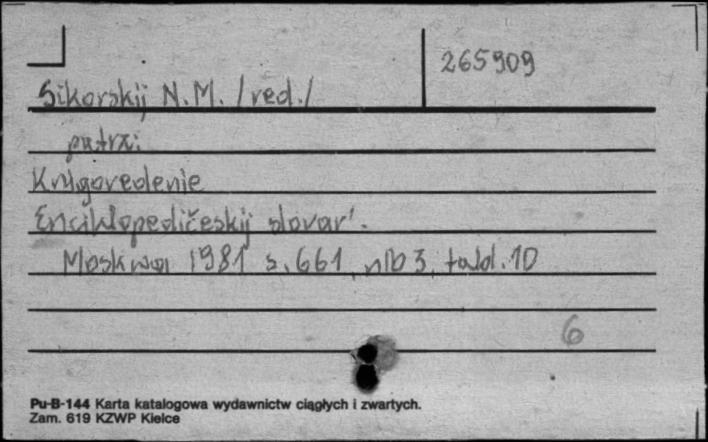 265909
Sikorskij N.M. /red./
patrz:
Knigovedenie
Enciklopedičeskij slovar'.
Moskwa 1981 s. 661, nlb 3, tabl. 10
6
Pu-B-144 Karta katalogowa wydawnictw ciągłych i zwartych.
Zam. 619 KZWP Kielce